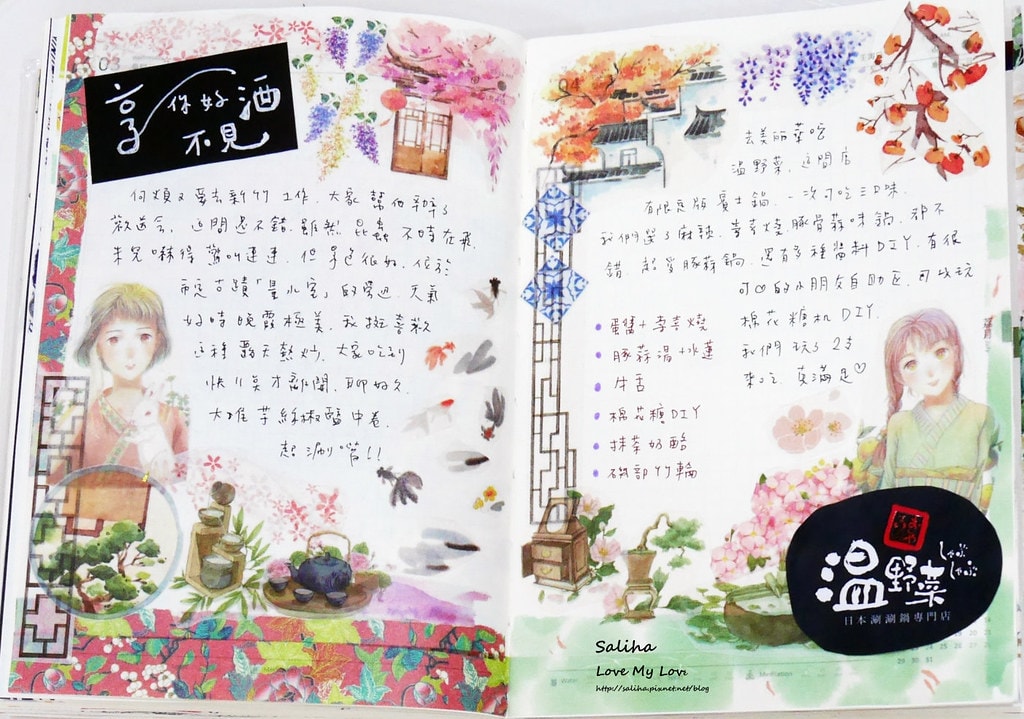 享
你好
不見
酒
何煩又要去新竹工作,大家幫他辦了
歡送會,這間還不錯,雖然昆蟲不時在飛,
嚇得驚叫連連,但景色很好,位於
古蹟「
的旁邊,天氣
好時晚霞極美,我挺喜歡
這種露天熱炒,大家吃到
快11點才離開,聊好久,
大推芋絲椒鹽中卷,
超涮嘴!!
去美麗華吃
溫野菜,這間店
有限定版賓士鍋,一次可吃三口味,
我們選了麻辣、壽喜燒、豚骨蒜味鍋,都不
錯,豚蒜鍋,還有多種醬料DIY,有很
可愛的小朋友自助區,可以玩
棉花糖机DIY,
我們玩了2支
來吃,真滿足♡
蛋醬+壽喜燒
豚蒜湯+水蓮
牛舌
棉花糖DIY
抹茶奶酪
磯部竹輪
溫野菜
しゃぶ
しゃぶ
日本涮涮鍋專門店
Saliha
Love My Lovi
http://saliha.pixnet.net/blog
Water
Meditation
29 30 31